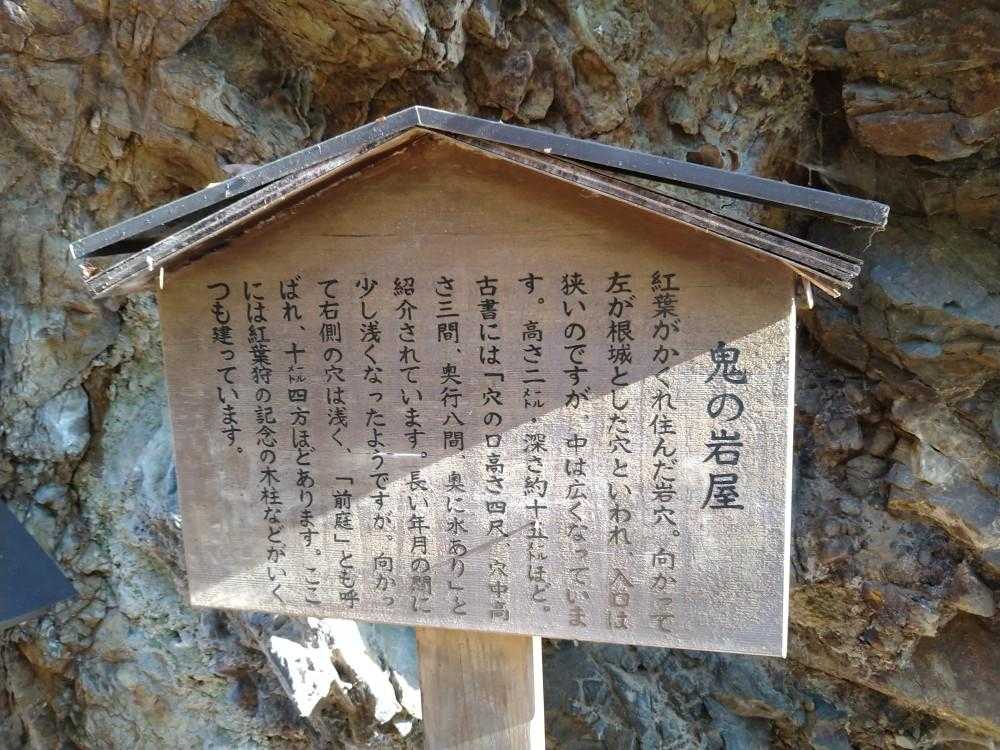 鬼の岩屋
紅葉がかくれ住んだ岩穴。向かって
左が根城とした穴といわれ、入口は
狭いのですが、中は広くなっていま
す。高さ二メートル・深さ約十五メートルほど。
古書には「穴の口高さ四尺、穴中高
さ三間、奥行八間、奥に水あり」と
紹介されています。長い年月の間に
少し浅くなったようですが。向かっ
て右側の穴は浅く、「前庭」とも呼
ばれ、十メートル四方ほどあります。ここ
には紅葉狩の記念の木柱などがいく
つも建っています。